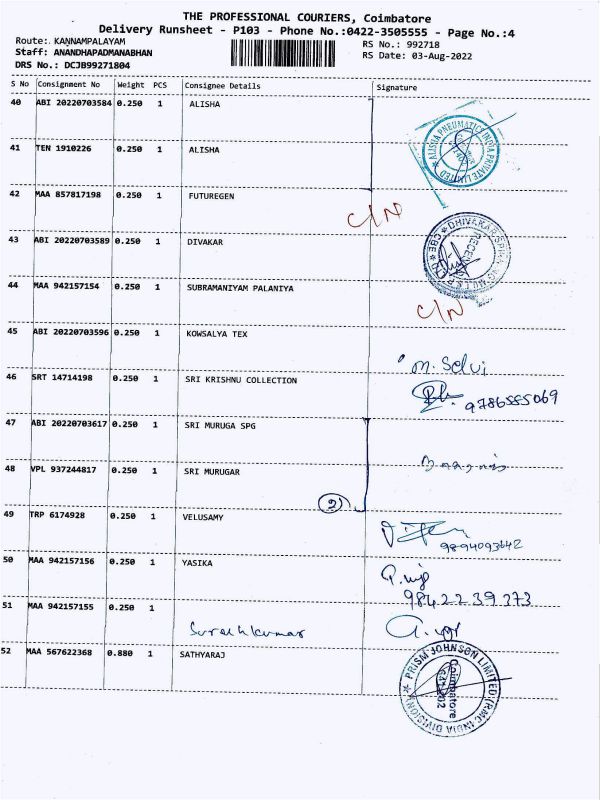 THE PROFESSIONAL COURIERS, Coimbatore
Delivery Runsheet - P103 - Phone No.:0422-3505555 - Page No.:4
Route:. KANNAMPALAYAM
Staff: ANANDHAPADMANABHAN
DRS No.: DCJB99271804
RS No.: 992718
RS Date: 03-Aug-2022
S No Consignment No Weight PCS Consignee Details Signature
40 ABI 20220703584 0.250 1 ALISHA
ALISSIA PNEUMATICS INDIA PRIVATE LIMITED
41 TEN 1910226 0.250 1 ALISHA
42 MAA 857817198 0.250 1 FUTUREGEN
C/N
43 ABI 20220703589 0.250 1 DIVAKAR
44 MAA 942157154 0.250 1 SUBRAMANIYAM PALANIYA
C/N
45 ABI 20220703596 0.250 1 KOWSALYA TEX
m. Selvi
46 SRT 14714198 0.250 1 SRI KRISHNU COLLECTION
9786555069
47 ABI 20220703617 0.250 1 SRI MURUGA SPG
48 VPL 937244817 0.250 1 SRI MURUGAR
2
49 TRP 6174928 0.250 1 VELUSAMY
9894093642
50 MAA 942157156 0.250 1 YASIKA
9842239373
51 MAA 942157155 0.250 1
Sureshkumar
52 MAA 567622368 0.880 1 SATHYARAJ
PRISM JOHNSON LIMITED (RMC INDIA DIVISION)
Coimbatore